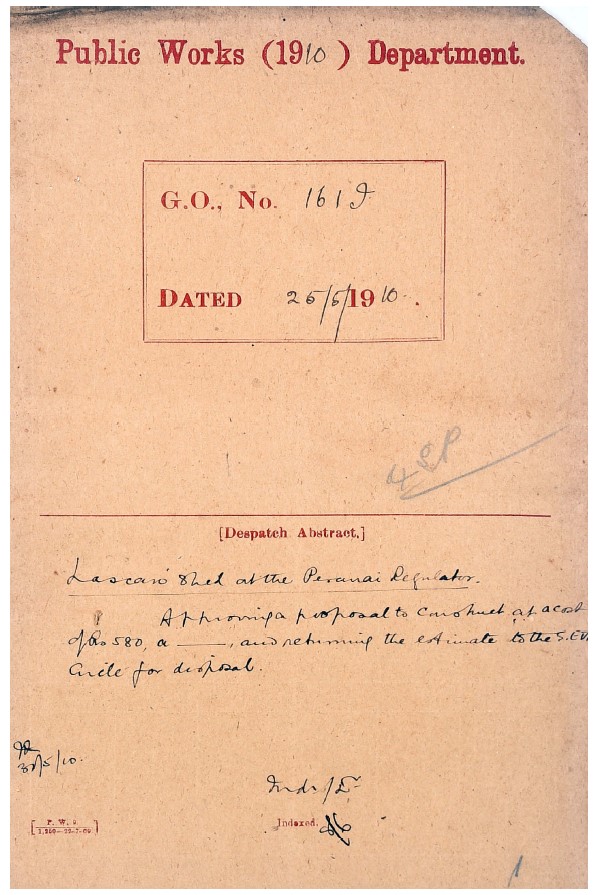 Public Works (1910) Department.
G.O., No. 161 I
DATED 25/5/1910.
[Despatch Abstract.]
Lascars' Shed at the Peranai Regulator.
Approving a proposal to construct at a cost
of Rs 580, a ———, and returning the estimate to the S.E.
Circle for disposal.
/5/10.
Indexed.
P. W. 9.